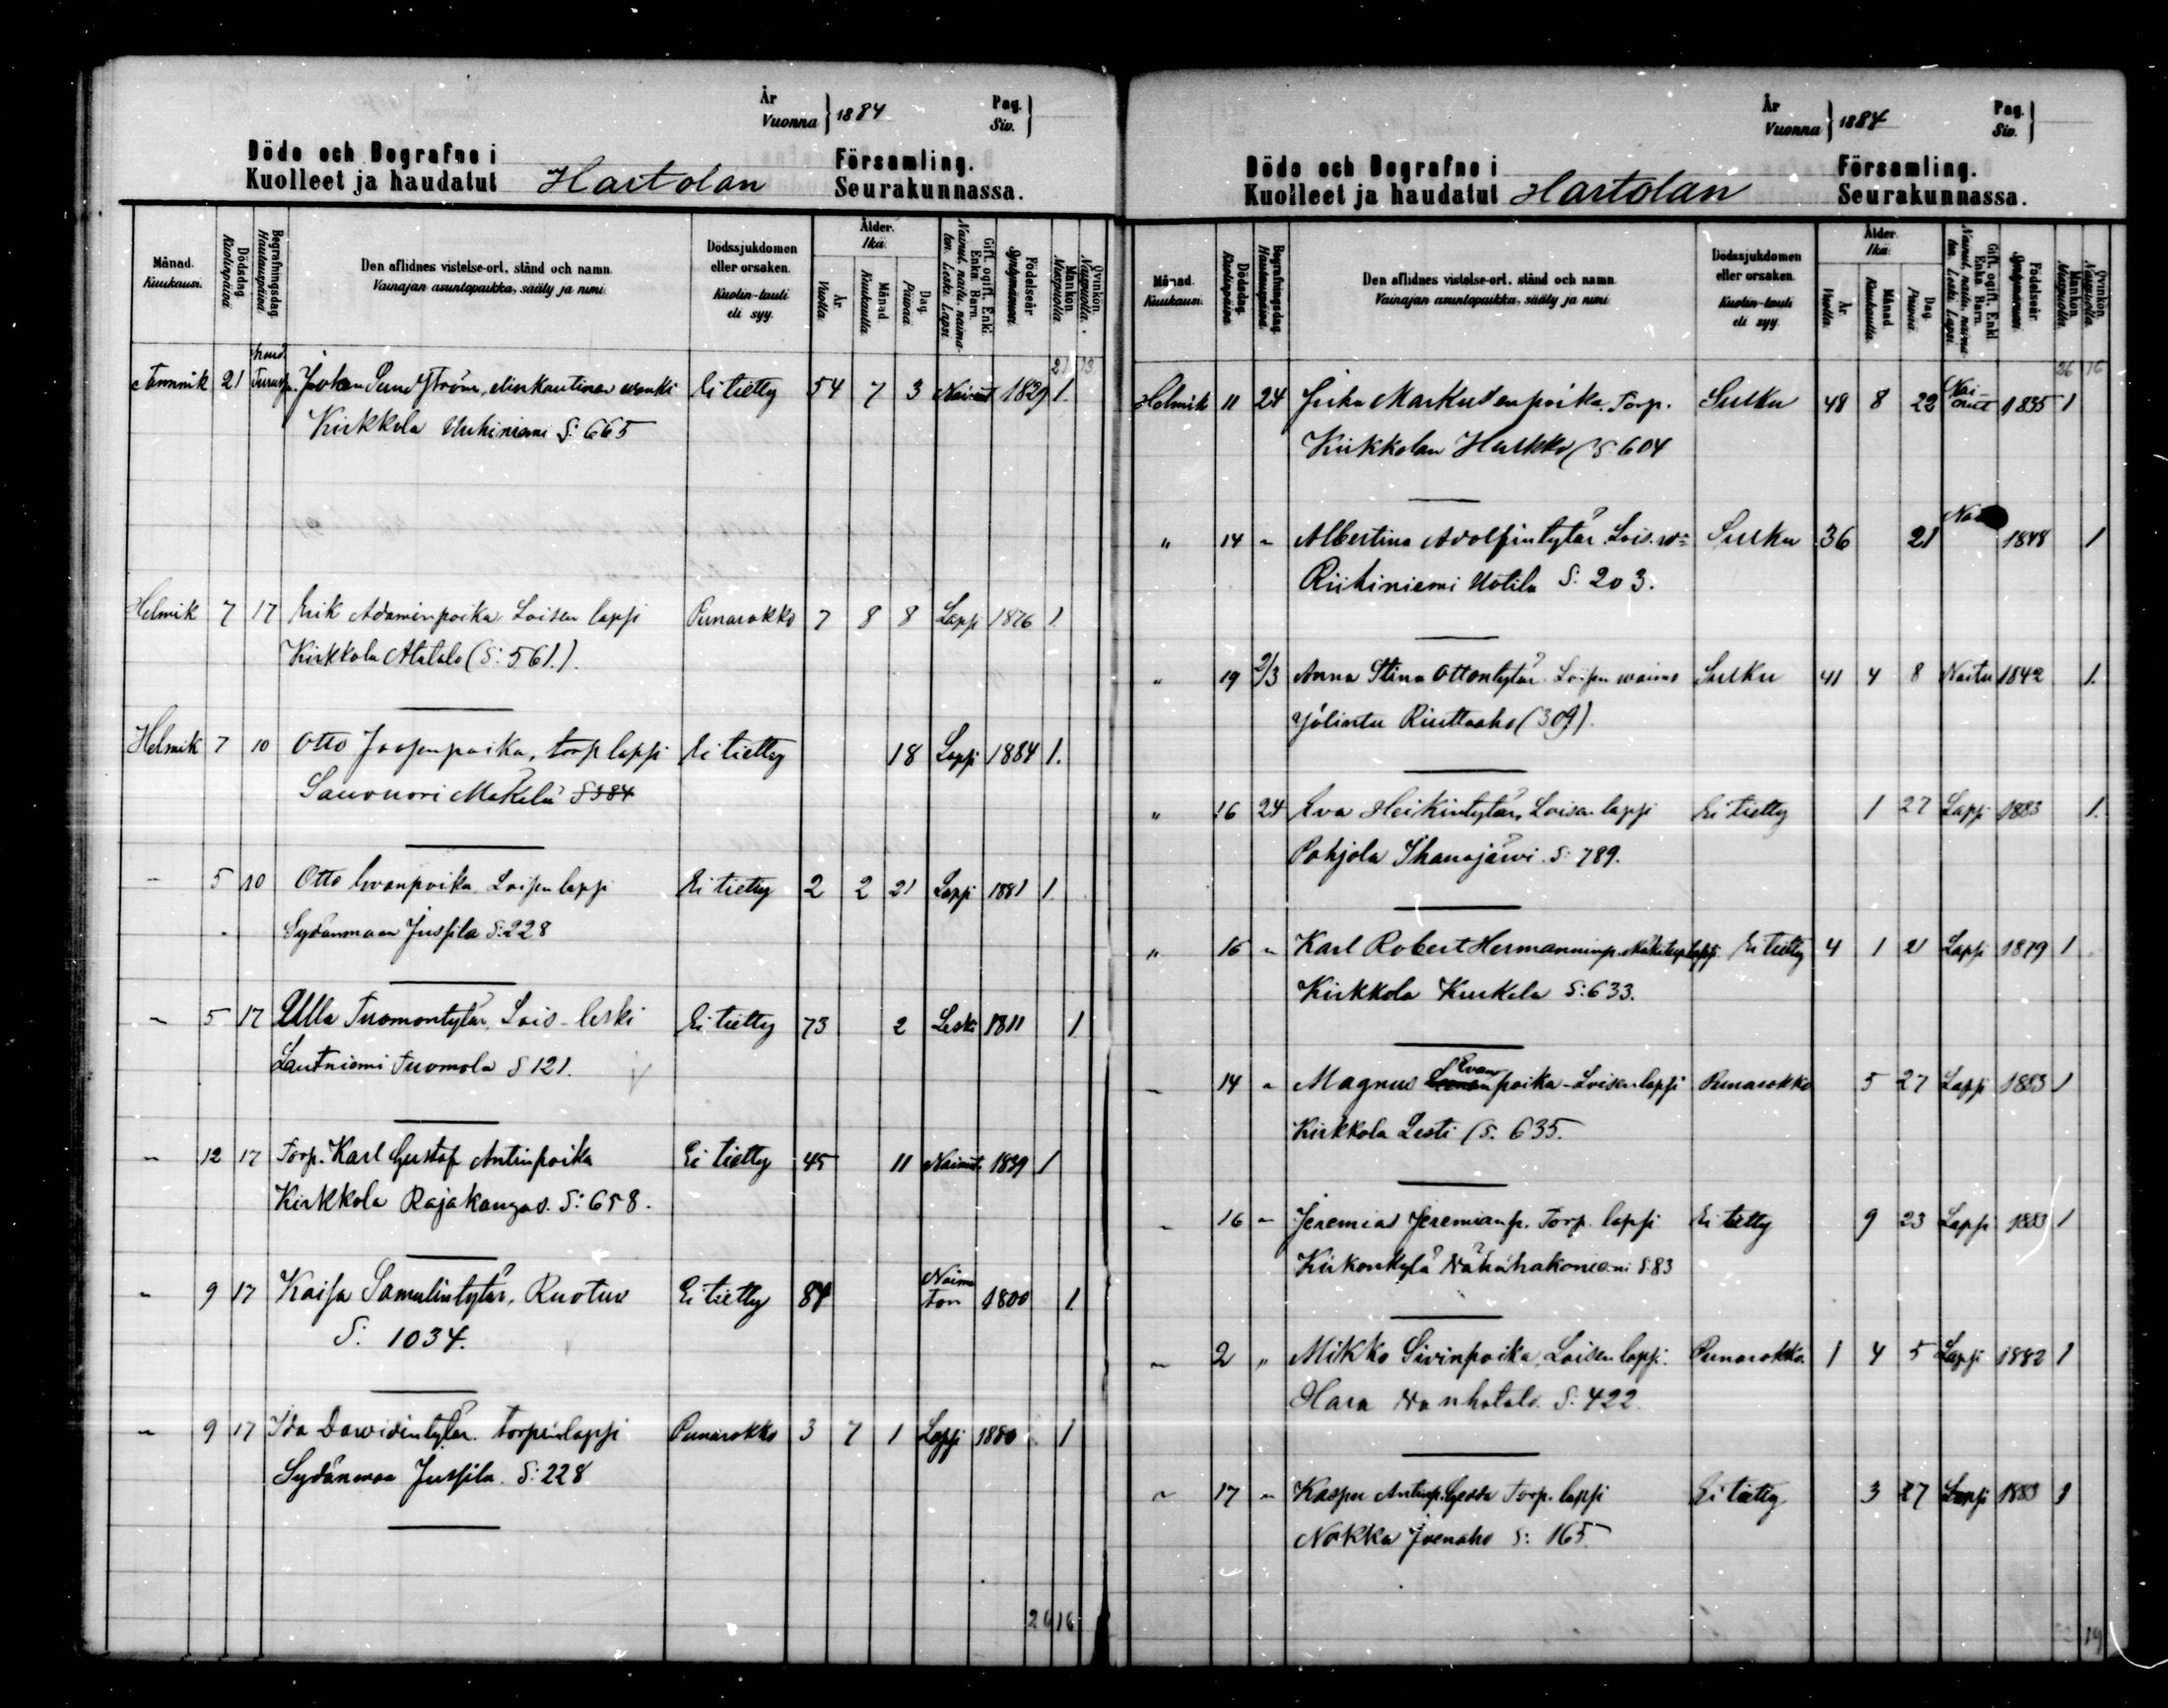 År
Vuonna } 1884
Pag.
Siv. }
Döde och Begrafne i Församling.
Kuolleet ja haudatut Hartolan Seurakunnassa.
Månad. Kuukausi.
Dödsdag. Kuolinpäivä
Begrafningsdag. Hautauspäivä
Den aflidnes vistelse-ort, stånd och namn.
Vainajan asuntopaikka, sääty ja nimi
Dödssjukdomen eller orsaken.
Kuolin-tauti eli syy.
Ålder. Ikä.
År. Vuotta.
Månad. Kuukautta.
Dag. Päivää
Gift. ogift. Enkl. Enka Barn.
Nainut, naitu, naimaton. Leski. Lapsi
Födelseår. Syntymävuosi.
Mankön. Miespuolia.
Qvinkön. Naispuolia.
21 13
Tammik 21 Johan Sundström, elinkautinen wanki Ei tietty 54 7 3 Nainut 1829 1.
Kirkkola Uuhiniemi S: 665
Helmik 7 17 Erik Adaminpoika Loisen lapsi Punarokko 7 8 8 Lapsi 1876 1.
Kirkkola Alatalo (S: 561.).
Helmik 7 10 Otto Joosenpoika, torp lapsi Ei tietty 18 Lapsi 1884 1.
Sawonori Mäkelä S 384
" 5 10 Otto Ewanpoika Loisen lapsi Ei tietty 2 2 21 Lapsi 1881 1.
Sydänmaan Jussila S:228
" 5 17 Ulla Tuomontytär, Lois-leski Ei tietty 73 2 Leski 1811 1
Lautniemi Tuomola S 121.
" 12 17 Torp. Karl Gustaf Antinpoika Ei tietty 45 11 Nainut 1839 1
Kirkkola Rajakangas. S: 658.
" 9 17 Kaisa Samulintytär, Ruotuw Ei tietty 84 Naima ton 1800 1.
S: 1034.
" 9 17 Ida Dawidintytär. torpin lapsi Punarokko 3 7 1 Lapsi 1880 1
Sydänmaa Jussila. S: 228
26 16
År
Vuonna } 1884
Pag.
Siv. }
Döde och Begrafne i Församling.
Kuolleet ja haudatut Hartolan Seurakunnassa.
Månad. Kuukausi.
Dödsdag. Kuolinpäivä
Begrafningsdag. Hautauspäivä.
Den aflidnes vistelse-ort, stånd och namn
Vainajan asuntopaikka, sääty ja nimi
Dödssjukdomen eller orsaken.
Kuolin-tauti eli syy.
Ålder. Ikä.
År. Vuotta.
Månad. Kuukautta.
Dag. Päivää
Gift. ogift. Enkl. Enka Barn.
Nainut, naitu, naimaton. Leski. Lapsi
Födelseår. Syntymävuosi.
Mankön. Miespuolia.
Qvinkön. Naispuolia.
26 16
Helmik 11 24 Juha Markusenpoika. Torp. Surku 48 8 22 Nainut 1835 1
Kirkkolan Huskko (S 604
" 14 " Albertina Adolfintytär. Lois. w= Surku 36 21 1848 1
Riihiniemi Uotila S: 203.
" 19 2/3 Anna Stina Ottontytär Loisen waimo Surku 41 4 8 Naitu 1842 1.
Yölintu Riuttaaho (309).
" 16 24 Eva Heikintytär, Loisen lapsi Ei tietty 1 27 Lapsi 1883 1.
Pohjola Ihanajärwi. S: 789.
" 16 " Karl Robert Hermanninp. Ei tietty 4 1 21 Lapsi 1879 1
Kirkkola Kurkela S:633.
" 14 " Magnus Evanpoika - Loisen lapsi Punarokko 5 27 Lapsi 1883 1
Kirkkola Lesti (S. 635.
" 16 " Jeremias Jeremianp. Torp. lapsi Ei tietty 9 23 Lapsi 1883 1
Kirkonkylä Wähähakoniemi S:83
" 2 " Mikko Siwinpoika, Loisen lapsi. Punarokko. 1 4 5 Lapsi 1882 1
Hara Wanhatalo. S: 422.
" 17 " Kasper Antinp. Torp. lapsi Ei tietty. 3 27 Lapsi 1883 1
Nokka Joenaho S: 165.
19